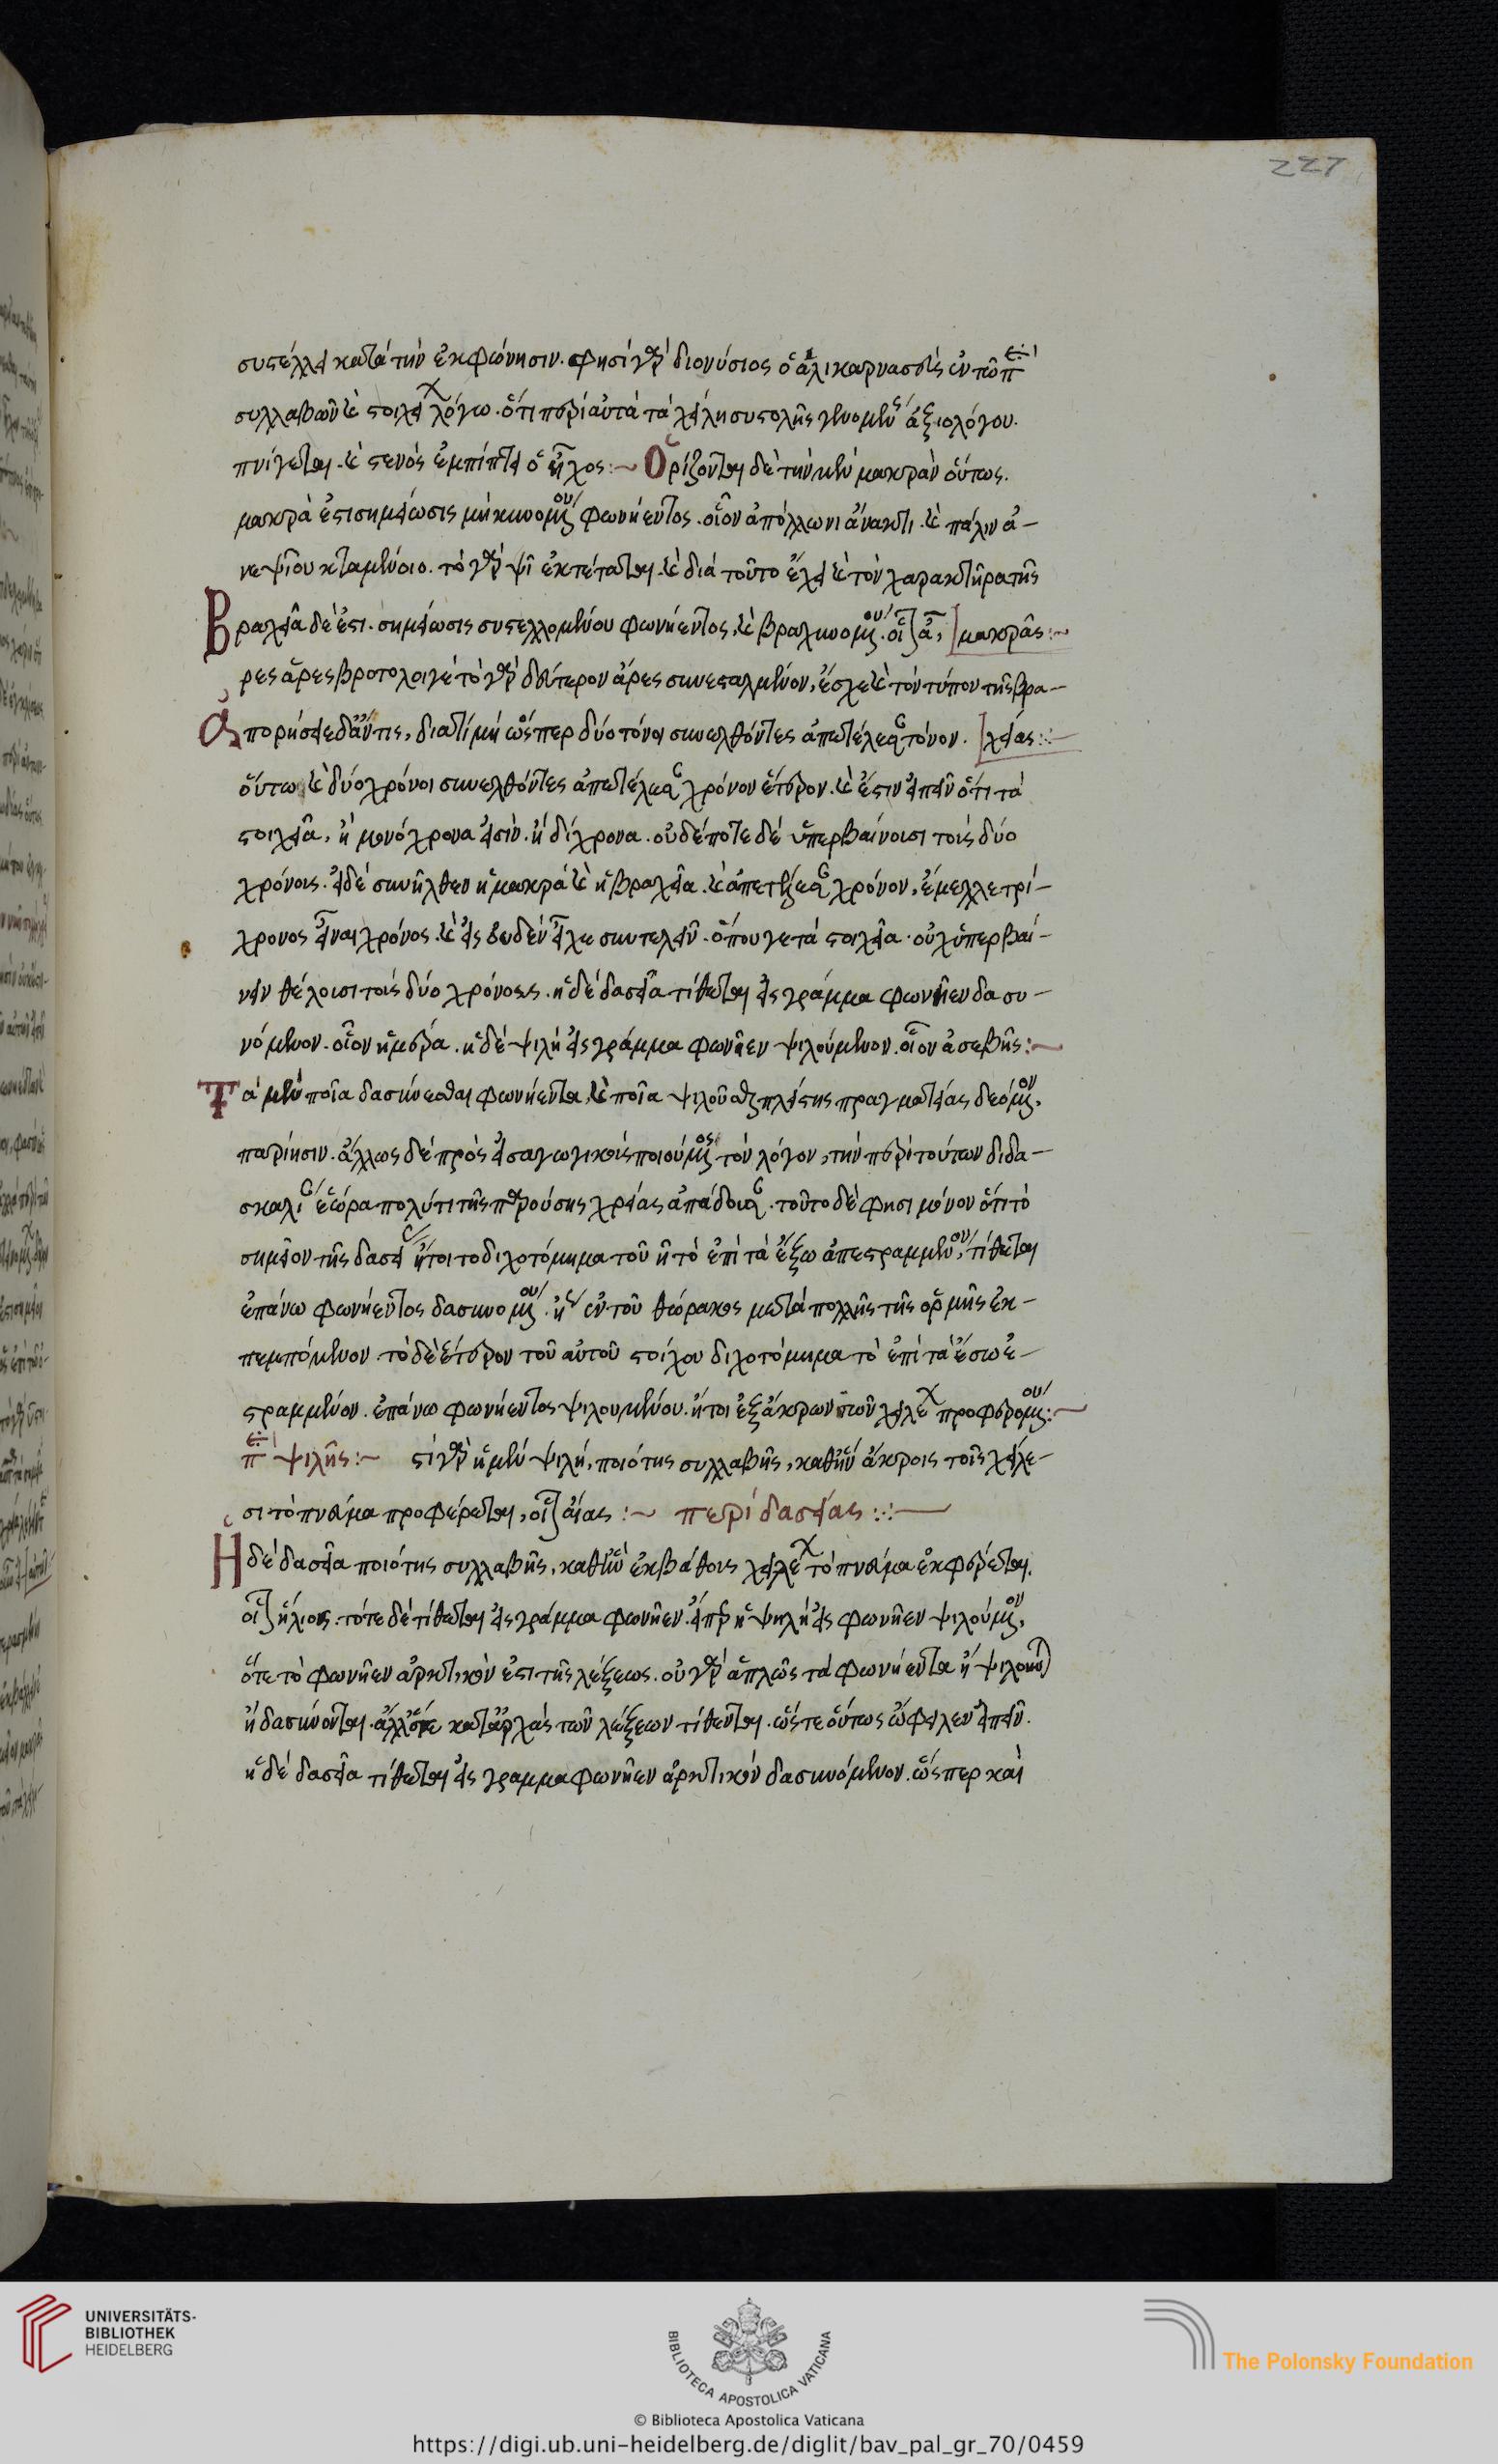 227
συστέλλει κατὰ τὴν ἐκφώνησιν. φησὶ γὰρ διονύσιος ὁ ἁλικαρνασσεὺς ἐν τῶ περὶ
συλλαβῶν καὶ στοιχείων λόγω. ὅτι περὶ αὐτὰ τὰ χείλη συστολῆς γενομένης ἀξιολόγου.
πνίγεται καὶ στενὸς ἐμπίπτει ὁ ἦχος:~ Ὁρίζονται δὲ τὴν μὲν μακρὰν οὕτως.
μακρὰ ἐστι σημείωσις μηκυνομένου φωνήεντος. οἷον ἀπόλλωνι ἄνακτι. καὶ πάλιν ἀ-
νεψιοῦ κταμένοιο. τὸ γὰρ ψι ἐκτέταται. καὶ διὰ τοῦτο ἔχει καὶ τὸν χαρακτῆρα τῆς
Βραχεῖα δέ ἐστι. σημείωσις συστελλομένου φωνήεντος, καὶ βραχυνομένου. οἷον ἆ, [μακρᾶς:~
ρες ἄρες βροτολοιγὲ τὸ γὰρ δεύτερον ἄρες συνεσταλμένον, ἔσχε καὶ τὸν τύπον τῆς βρα-
Ἀπορήσειε δ' ἄν τις, διατί μὴ ὥσπερ δύο τόνοι συνελθόντες ἀπετέλεσαν τόνον. [χείας:~
οὕτω καὶ δύο χρόνοι συνελθόντες ἀπετέλεσαν χρόνον ἕτερον. καὶ ἔστιν εἰπεῖν ὅτι τὰ
στοιχεῖα, ἢ μονόχρονα εἰσὶν. ἢ δίχρονα. οὐδέποτε δὲ ὑπερβαίνουσι τοὺς δύο
χρόνους. εἰ δὲ συνῆλθεν ἡ μακρὰ καὶ ἡ βραχεῖα. καὶ ἀπετέλεσαν χρόνον, ἔμελλε τρί-
χρονος εἶναι χρόνος. καὶ εἰς οὐδὲν εἶχε συντελεῖν. ὅπου γε τὰ στοιχεῖα. οὐχ ὑπερβαί-
νειν θέλουσι τοὺς δύο χρόνους. ἡ δὲ δασεῖα τίθεται εἰς γράμμα φωνῆεν δασυ-
νόμενον. οἷον ἡμέρα. ἡ δὲ ψιλὴ εἰς γράμμα φωνῆεν ψιλούμενον. οἷον ἀσεβής:~
Τὰ μὲν ποῖα δασύνεσθαι φωνήεντα, καὶ ποῖα ψιλοῦσθαι πλείστης πραγματείας δεόμενον,
παρίησιν. ἄλλως δὲ πρὸς εἰσαγωγικοὺς ποιούμενος τὸν λόγον, τὴν περὶ τούτων διδα-
σκαλίαν ἑώρα πολύ τι τῆς παρούσης χρείας ἀπάδουσαν. τοῦτο δὲ φησι μόνον ὅτι τὸ
σημεῖον τῆς δασείας ἤτοι τὸ διχοτόμημα τοῦ η τὸ ἐπὶ τὰ ἔξω ἀπεστραμμένον, τίθεται
ἐπάνω φωνήεντος δασυνομένου. ἢ ἐν τοῦ θώρακος μετὰ πολλῆς τῆς ὁρμῆς ἐκ-
πεμπόμενον. τὸ δὲ ἕτερον τοῦ αὐτοῦ στοίχου διχοτόμημα τὸ ἐπὶ τὰ ἔσω ἐ-
στραμμένον. ἐπάνω φωνήεντος ψιλουμένου. ἤτοι ἐξ ἄκρων τῶν χειλέων προφερομένου:~
περὶ ψιλῆς:~ ἔστι γὰρ ἡ μὲν ψιλή, ποιότης συλλαβῆς, καθ' ἣν ἄκροις τοῖς χείλε-
σι τὸ πνεῦμα προφέρεται, οἷον αἴας:~ περὶ δασείας:~
Ἡ δὲ δασεῖα ποιότης συλλαβῆς, καθ' ἣν ἐκ βάθους χειλέων τὸ πνεῦμα ἐκφέρεται.
οἷον ἥλιος. τότε δὲ τίθεται εἰς γράμμα φωνῆεν. εἴπερ ἡ ψιλὴ εἰς φωνῆεν ψιλούμενον,
ὅτε τὸ φωνῆεν ἀρκτικόν ἐστι τῆς λέξεως. οὐ γὰρ ἁπλῶς τὰ φωνήεντα ἢ ψιλοῦνται
ἢ δασύνονται. ἀλλ' ὅτε κατ' ἀρχὰς τῶν λέξεων τίθενται. ὥστε οὕτως ὤφειλεν εἰπεῖν.
ἡ δὲ δασεῖα τίθεται εἰς γραμμα φωνῆεν ἀρκτικὸν δασυνόμενον. ὥσπερ καὶ
UNIVERSITÄTS-
BIBLIOTHEK
HEIDELBERG
BIBLIOTECA APOSTOLICA VATICANA
The Polonsky Foundation
© Biblioteca Apostolica Vaticana
https://digi.ub.uni-heidelberg.de/diglit/bav_pal_gr_70/0459